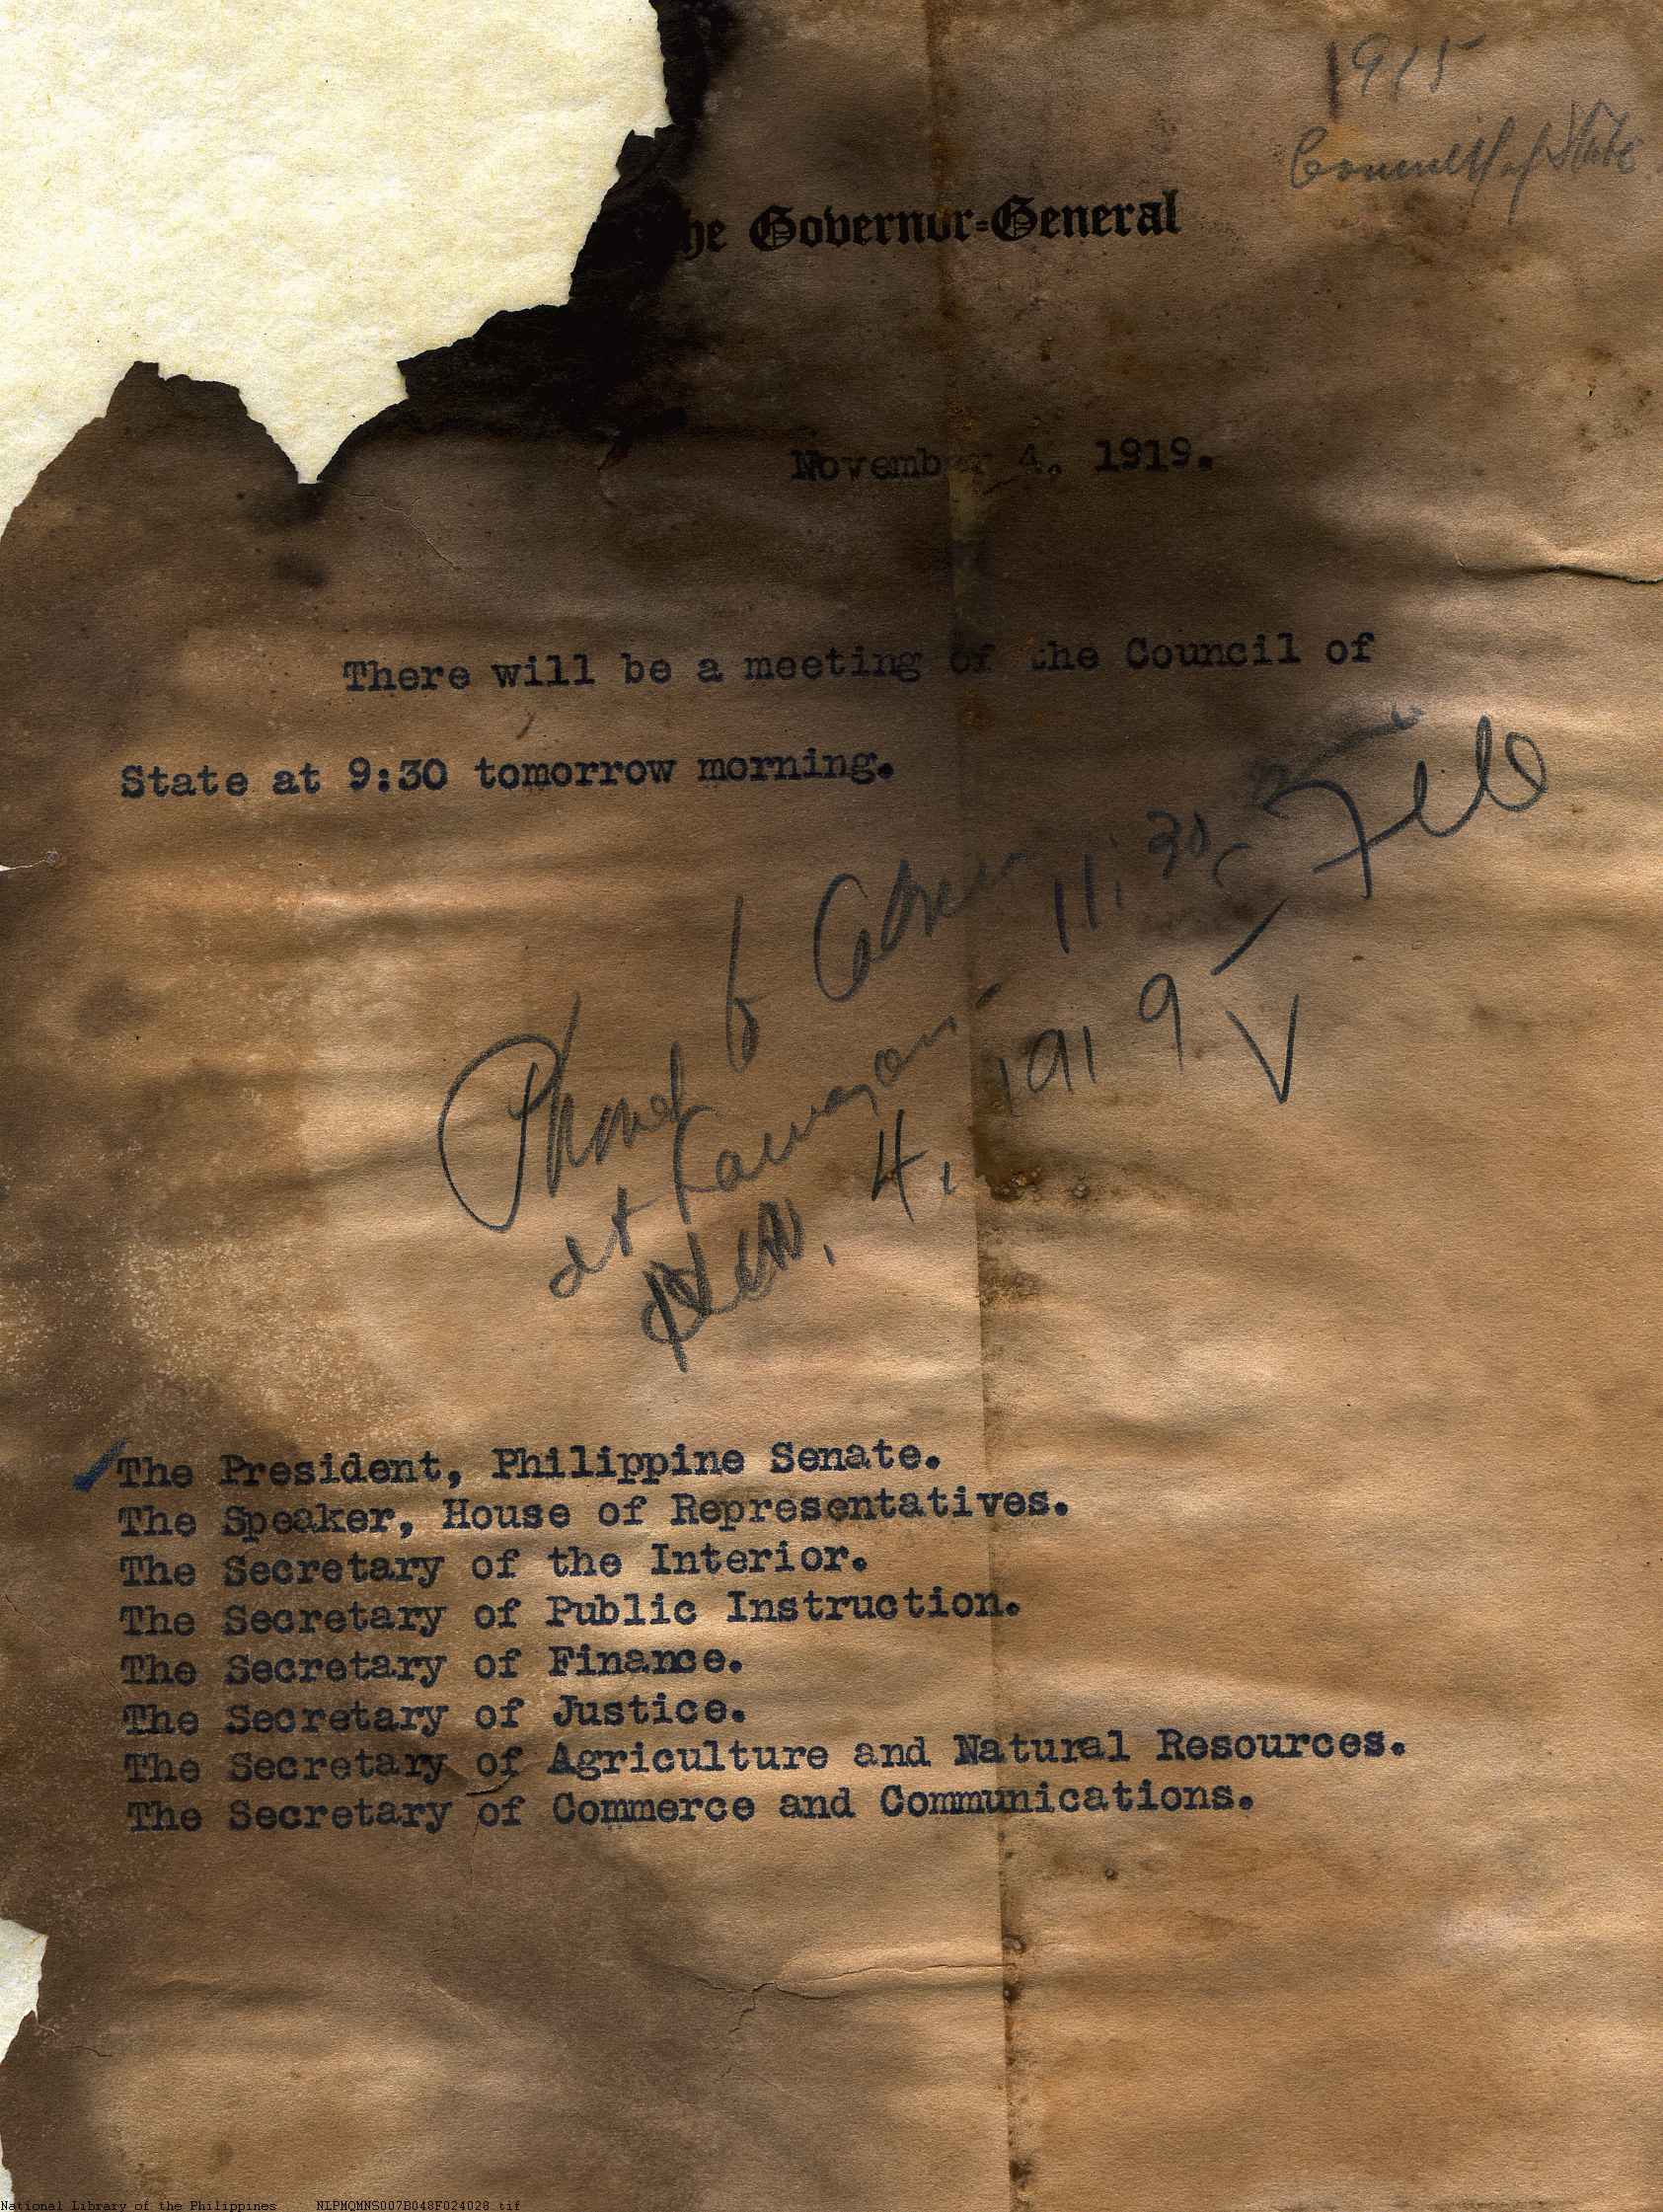 1915
Council of State
he Governor-General
November 4, 1919.
There will be a meeting of the Council of
State at 9:30 tomorrow morning.
Phoned to 11:30
at
Nov. 4, 1919
The President, Philippine Senate.
The Speaker, House of Representatives.
The Secretary of the Interior.
The Secretary of Public Instruction.
The Secretary of Finance.
The Secretary of Justice.
The Secretary of Agriculture and Natural Resources.
The Secretary of Commerce and Communications.
National Library of the Philippines NLPMQMNS007B048F024028.tif